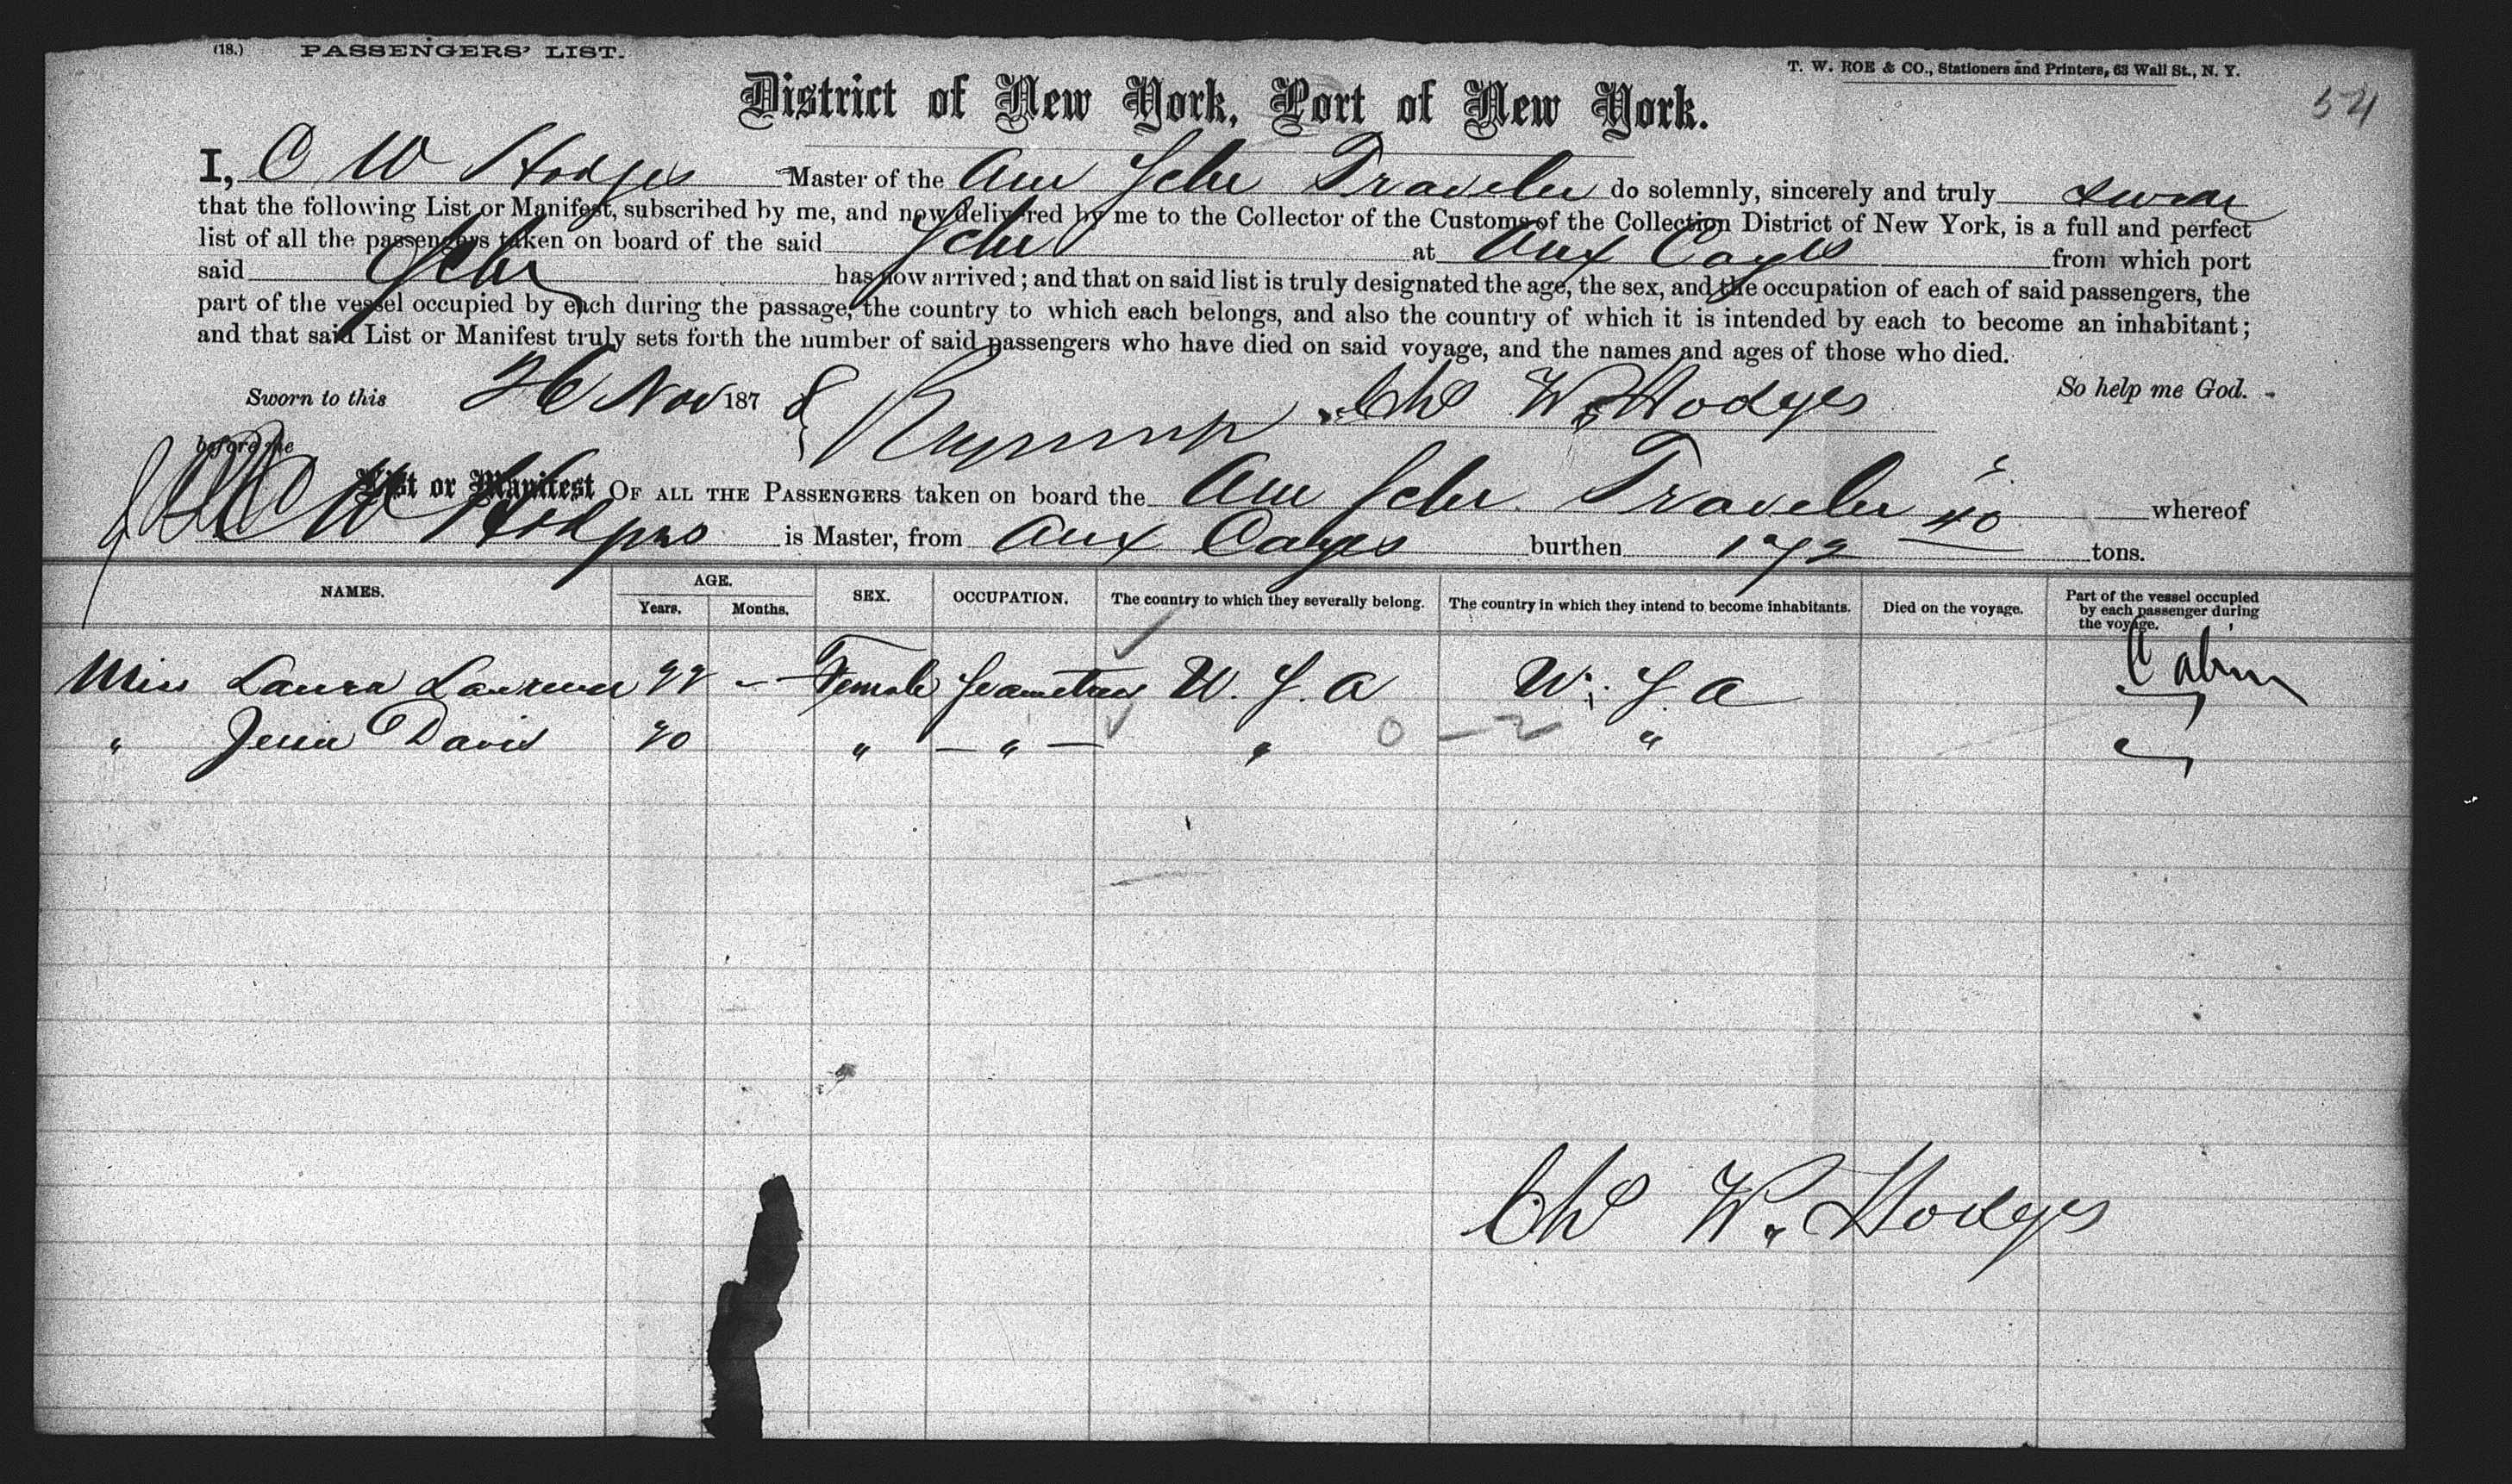 (18.) PASSENGERS' LIST.
T. W. ROE & CO., Stationers and Printers, 63 Wall St., N. Y.
54
District of New York, Port of New York.
I, C W Hodges Master of the Am Schr Traveler do solemnly, sincerely and truly swear
that the following List or Manifest, subscribed by me, and now delivered by me to the Collector of the Customs of the Collection District of New York, is a full and perfect
list of all the passengers taken on board of the said Schr at Aux Cayes from which port
said Schr has now arrived; and that on said list is truly designated the age, the sex, and the occupation of each of said passengers, the
part of the vessel occupied by each during the passage, the country to which each belongs, and also the country of which it is intended by each to become an inhabitant;
and that said List or Manifest truly sets forth the number of said passengers who have died on said voyage, and the names and ages of those who died.
So help me God.
Sworn to this 26 Nov 1878 Chs W. Hodges
before me
List or Manifest OF ALL THE PASSENGERS taken on board the Am Schr Traveler whereof
C W Hodges is Master, from Aux Cayes burthen 172 40 tons.
NAMES. AGE. SEX. OCCUPATION. The country to which they severally belong. The country in which they intend to become inhabitants. Died on the voyage. Part of the vessel occupied by each passenger during the voyage.
Years. Months.
Miss Laura 22 - Female U. S. A U. S. A Cabin
" Jessie Davis 20 " — " — " 0 - 2 "
Chs W. Hodges